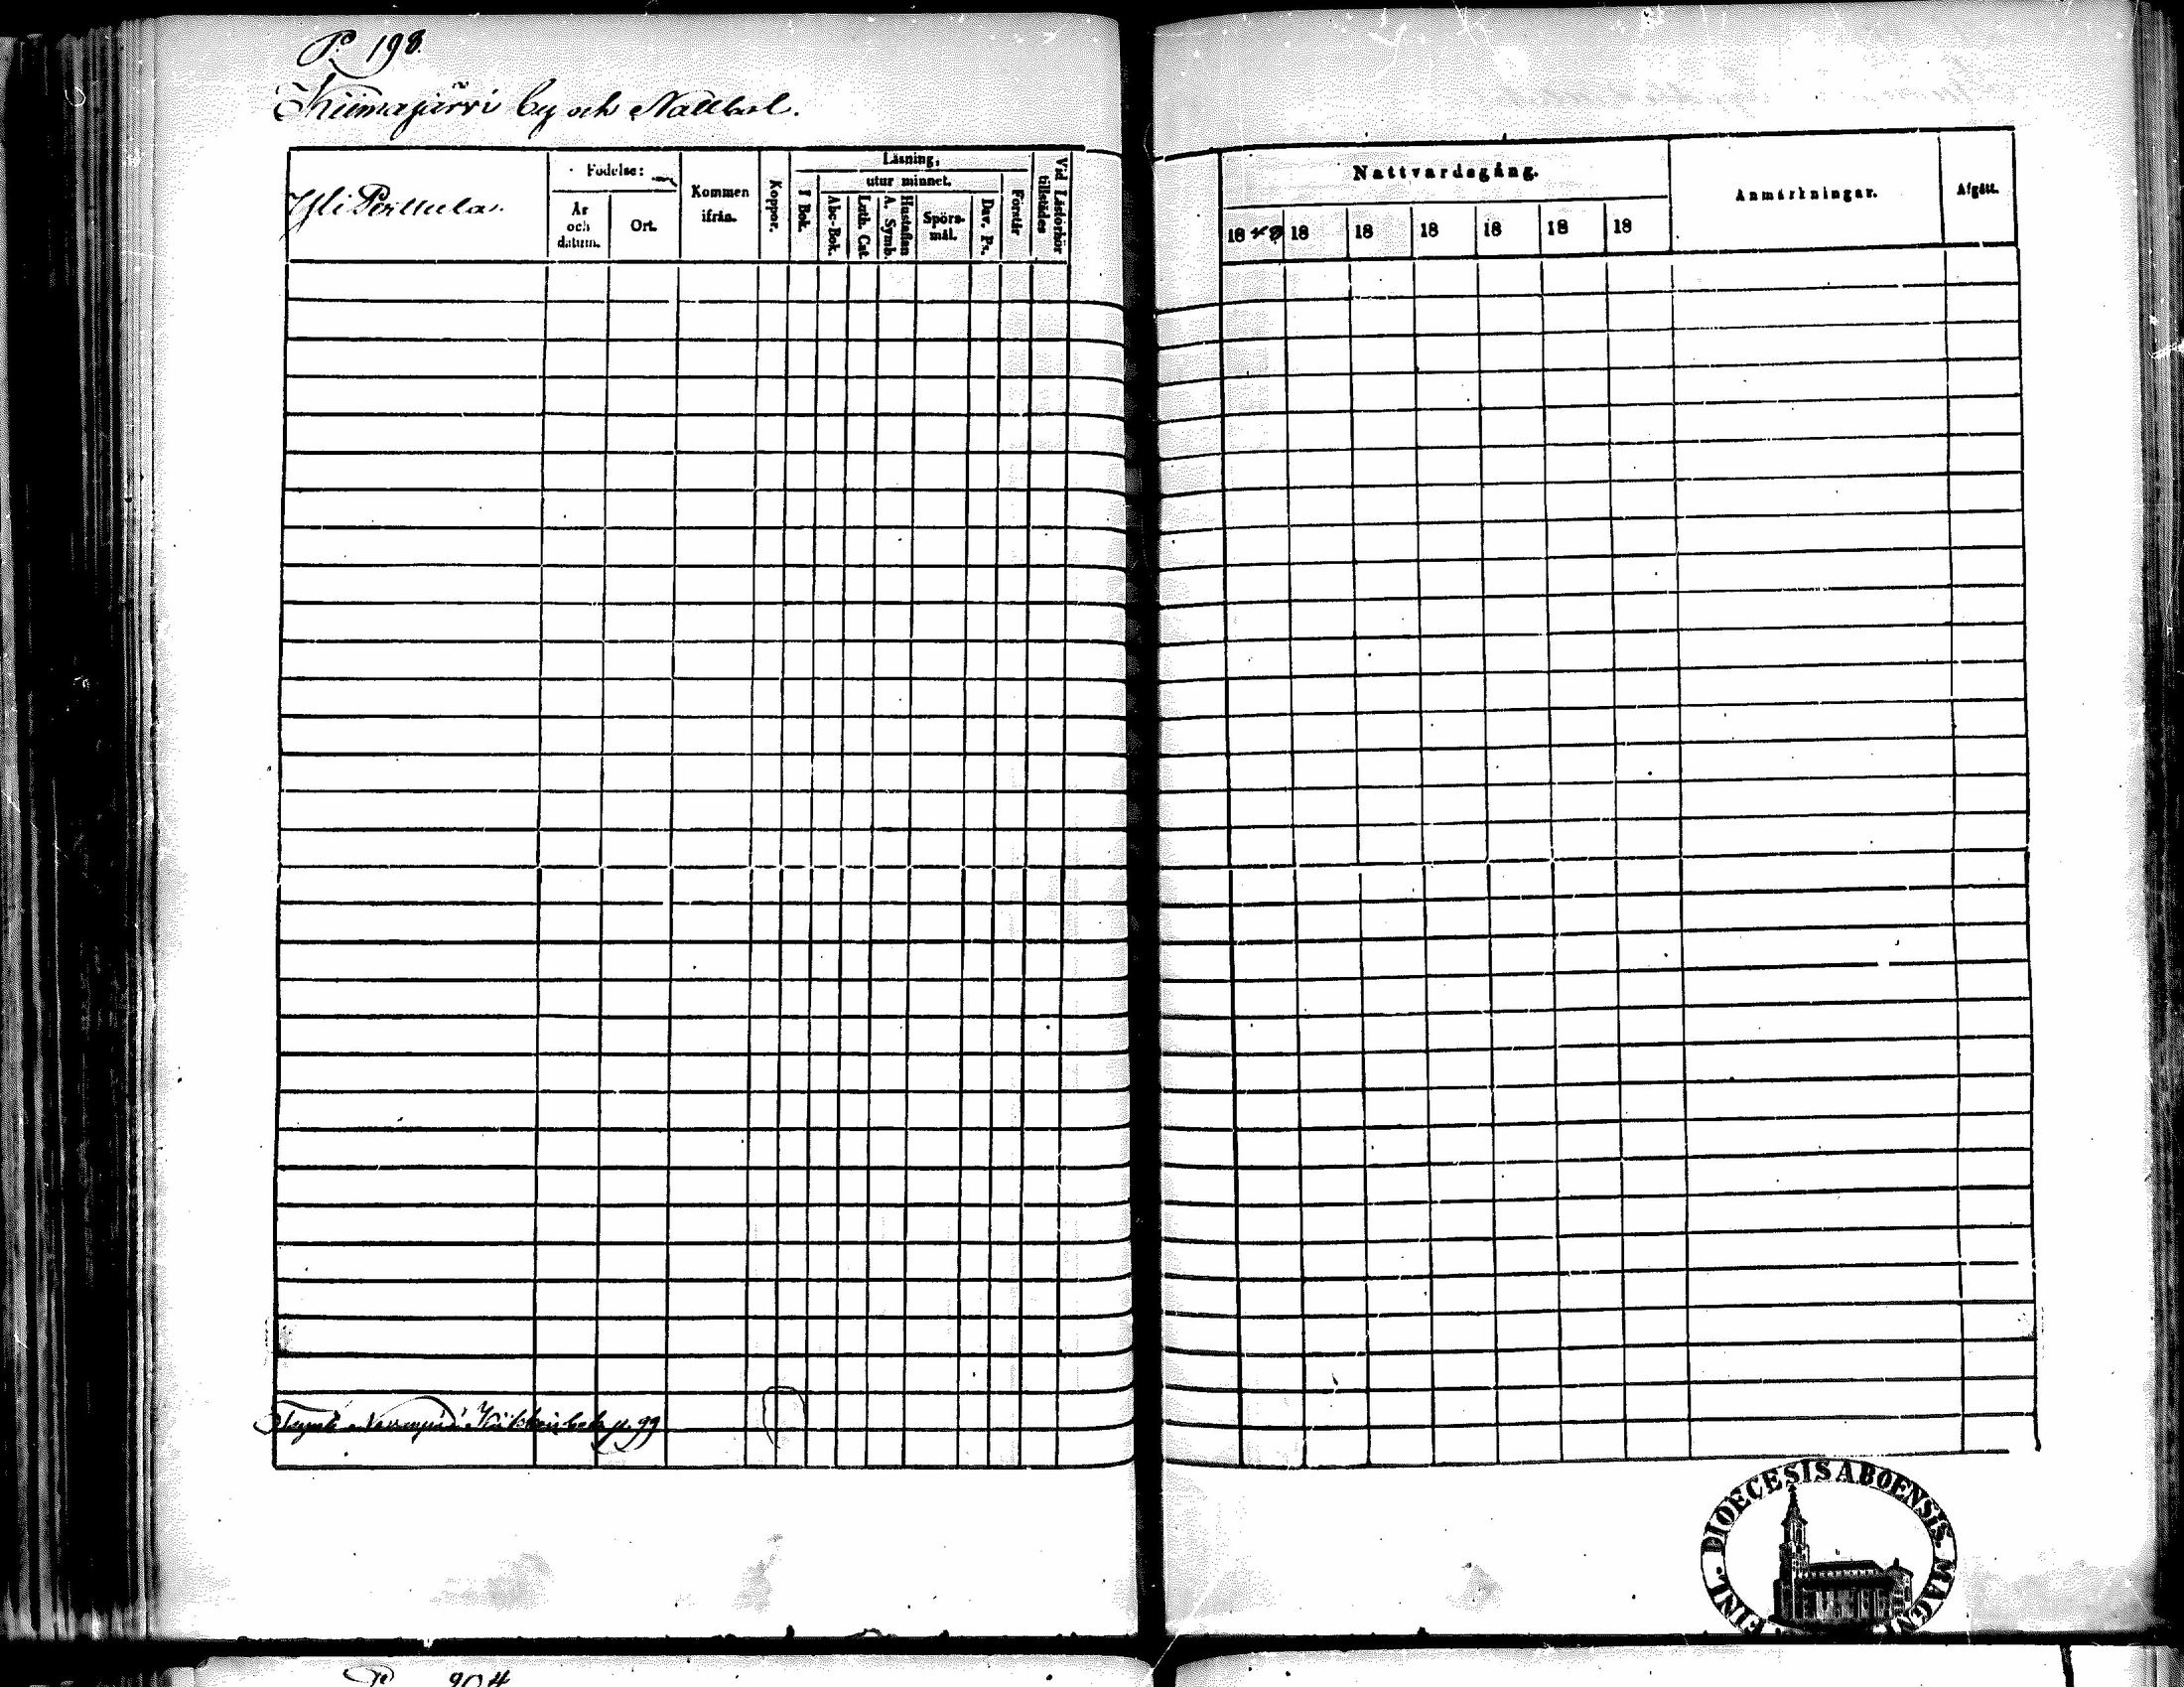 P. 198.
Kiimajärvi by och Nallbol.
Yli Perttula.
Födelse:
År och datum.
Ort.
Kommen ifrån.
Koppor.
Läsning,
I Bok.
utur minnet.
Abc-Bok.
Luth. Cat.
Hustaflan A. Symb.
Spörs-mål.
Dav. Ps.
Förstår
Vid Läsförhör tillstädes
Nattvardsgång.
18 18 18 18 18 18 18
Anmärkningar.
Afgått.
p. 99
DIOECESIS ABOENSIS. MAGNI
FINL.
P. 204